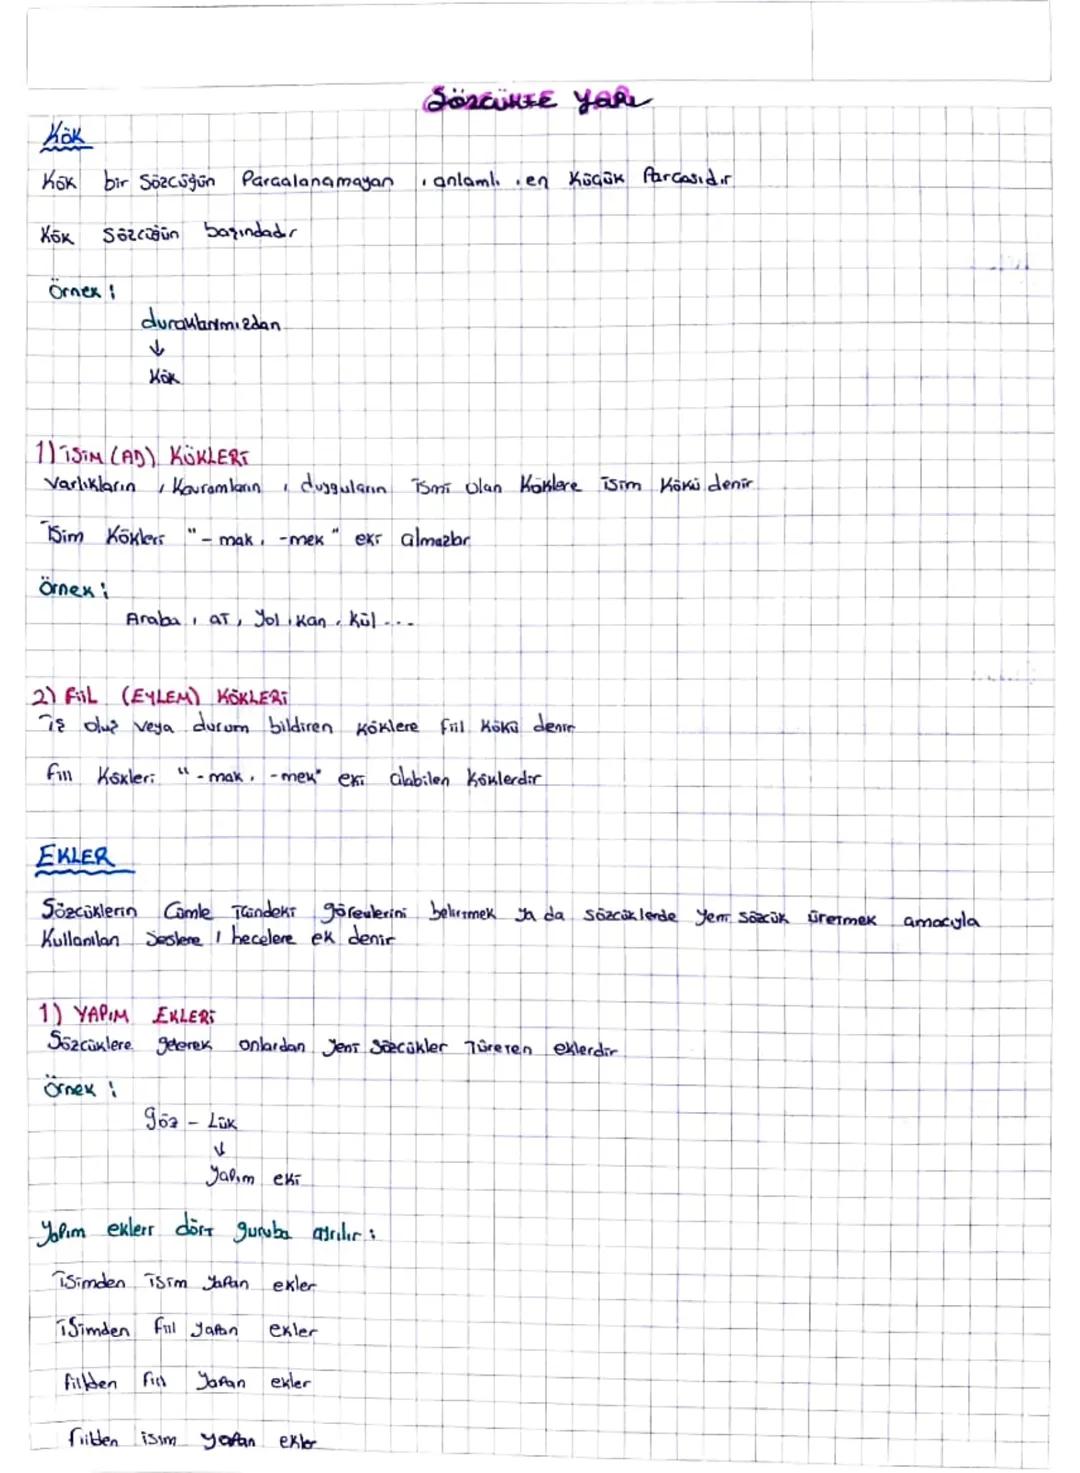 Sözcükte yapı
Kök
Kök bir Sözcüğün Parçalanamayan , anlamlı , en Küçük Parçasıdır
Kök Sözcüğün başındadır
Örnek :
duraklarımızdan
↓
Kök
1) İSİM (AD) KÖKLERİ
Varlıkların , Kavramların , duyguların ismi olan Köklere isim Kökü denir
İsim Kökleri "- mak , -mek" eki almazlar
Örnek :
Araba , at , Yol , Kan , Kül ...
2) FİİL (EYLEM) KÖKLERİ
İş oluş veya durum bildiren köklere fiil Kökü denir
fiil Kökleri "-mak , -mek" eki alabilen Köklerdir
EKLER
Sözcüklerin Cümle içindeki görevlerini belirtmek ya da sözcüklerde yeni sözcük üretmek amacıyla
Kullanılan Seslere / hecelere ek denir
1) YAPIM EKLERİ
Sözcüklere gelerek onlardan yeni Sözcükler Türeten eklerdir
Örnek :
göz - Lük
↓
Yapım eki
Yapım ekleri dört guruba ayrılır :
isimden isim yapan ekler
isimden fiil yapan ekler
fiilden fiil Yapan ekler
fiilden isim yapan ekler